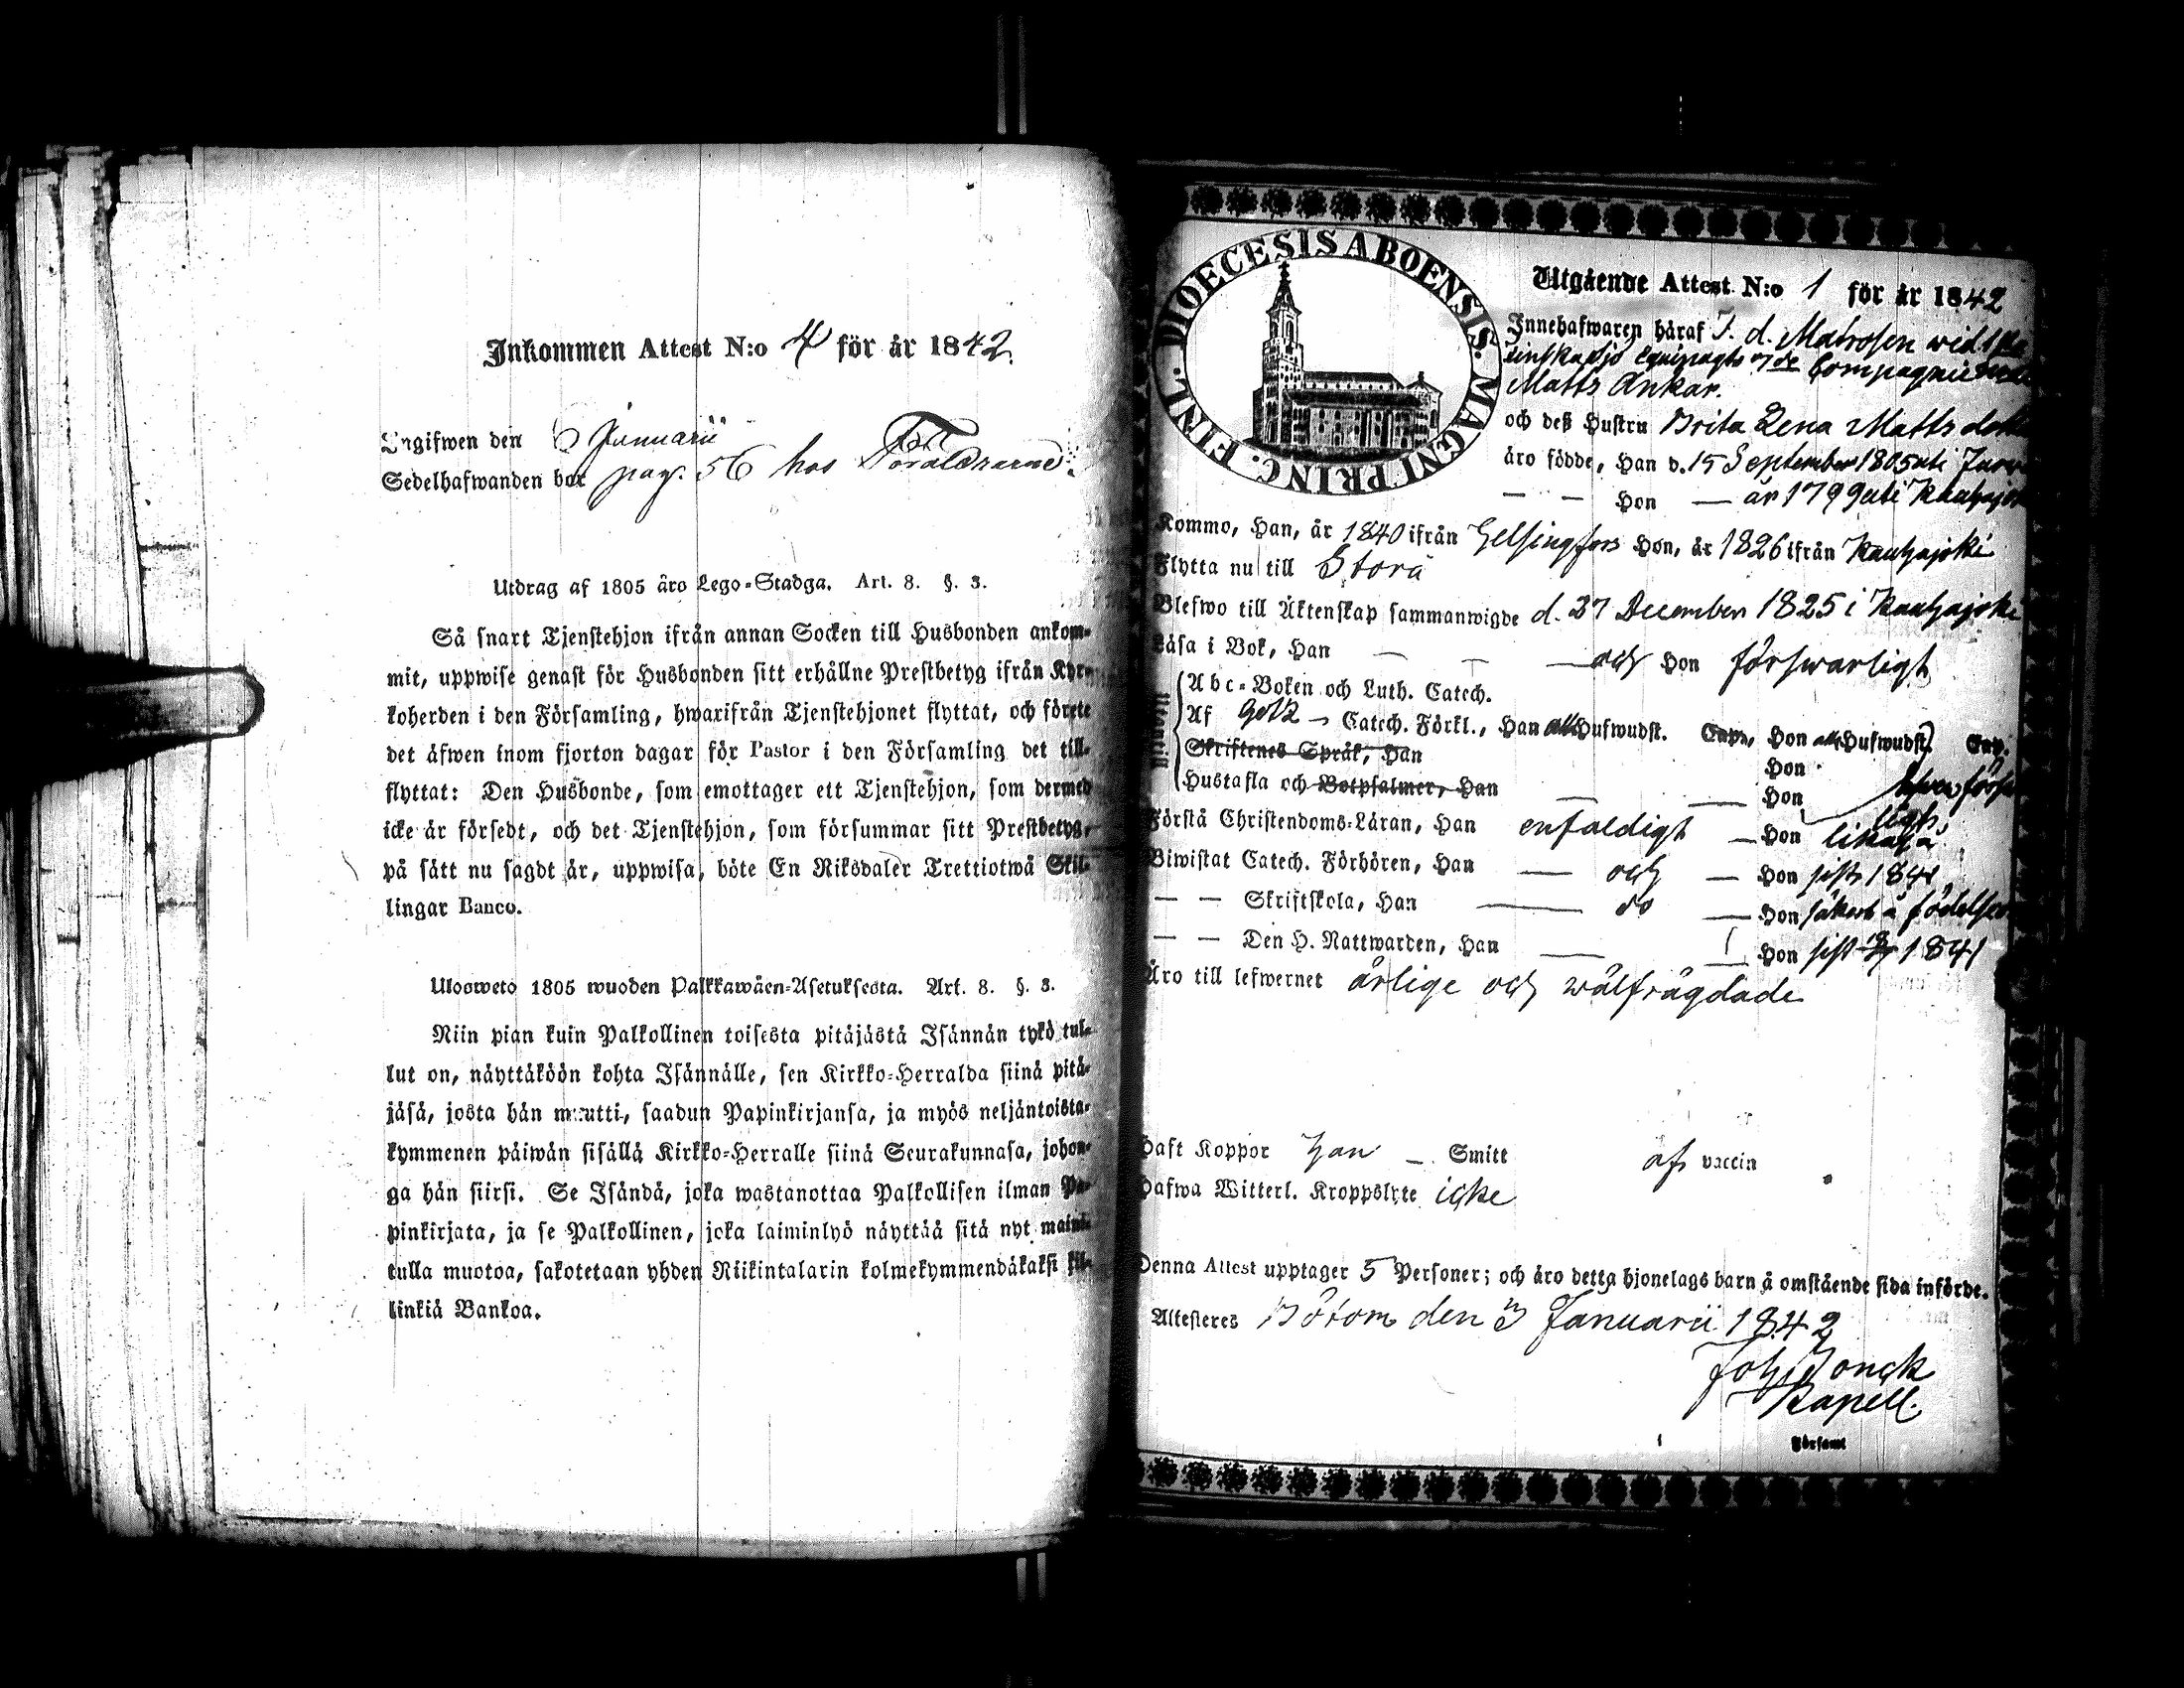 Inkommen Attest N:o 4 för år 1842.
Ingifwen den 6 Januarii
Sedelhafwanden bor pag. 56 hos Föräldrarne.
Utdrag af 1805 års Lego-Stadga. Art. 8. §. 3.
Så snart Tjenstehjon ifrån annan Socken till Husbonden ankom-
mit, uppwise genast för Husbonden sitt erhållne Prestbetyg ifrån Kyr-
koherden i den Församling, hwarifrån Tjenstehjonet flyttat, och förete
det äfwen inom fjorton dagar för Pastor i den Församling det till-
flyttat: Den Husbonde, som emottager ett Tjenstehjon, som dermed
icke är försedt, och det Tjenstehjon, som försummar sitt Prestbetyg,
på sätt nu sagdt är, uppwisa, böte En Riksdaler Trettiotwå Skil-
lingar Banco.
Ulosweto 1805 wuoden Palkkawäen-Asetuksesta. Art. 8. §. 3.
Niin pian kuin Palkollinen toisesta pitäjästä Isännän tykö tul-
lut on, näyttäköön kohta Isännälle, sen Kirkko-Herralda siinä pitä-
jäsä, josta hän muutti, saadun Papinkirjansa, ja myös neljäntoista-
kymmenen päiwän sisällä Kirkko-Herralle siinä Seurakunnasa, johon-
ga hän siirsi. Se Isändä, joka wastanottaa Palkollisen ilman Pa-
pinkirjata, ja se Palkollinen, joka laiminlyö näyttää sitä nyt maini-
tulla muotoa, sakotetaan yhden Riikintalarin kolmekymmendäkaksi kil-
linkiä Bankoa.
DIOECESIS ABOENSIS. MAGNI PRINC. FINL.
Utgående Attest N:o 1 för år 1842
Innehafwaren häraf F. d. Matrosen wid
Equipagets 7de Compagnie
Matts Ankar.
och deß Hustru Brita Lena Matts
äro födde, Han d. 15 September 1805 uti
— — Hon — år 1799 uti Kauhajoki
Kommo, Han, år 1840 ifrån Helsingfors Hon, år 1826 ifrån Kauhajoki
Flytta nu till Storå
Blefwo till Äktenskap sammanwigde d. 27 December 1825 i Kauhajoki
Läsa i Bok, Han — — — och Hon förswarligt
Utantill
Abc-Boken och Luth. Catech.
Af Gotz — Catech. Förkl., Han alla Hufwudst. Cap., Hon alla Hufwudst. Cap.
Skriftenes Språk, Han Hon
Hustafla och Botpsalmer, Han — — Hon
Förstå Christendoms-Läran, Han enfaldigt — Hon likaså
Biwistat Catech. Förhören, Han — och — Hon sist 1841
— — Skriftskola, Han — do — Hon
— — Den H. Nattwarden, Han — — Hon sist 1841
Äro till lefwernet ärlige och wälfrägdade
Haft Koppor Han — Smitt af vaccin
Hafwa Witterl. Kroppslyte icke
Denna Attest upptager 5 Personer; och äro detta hjonelags barn å omstående sida införde.
Attesteras Bötom den 3 Januarii 1842
Joh. Jonck
Kapell.
Församl